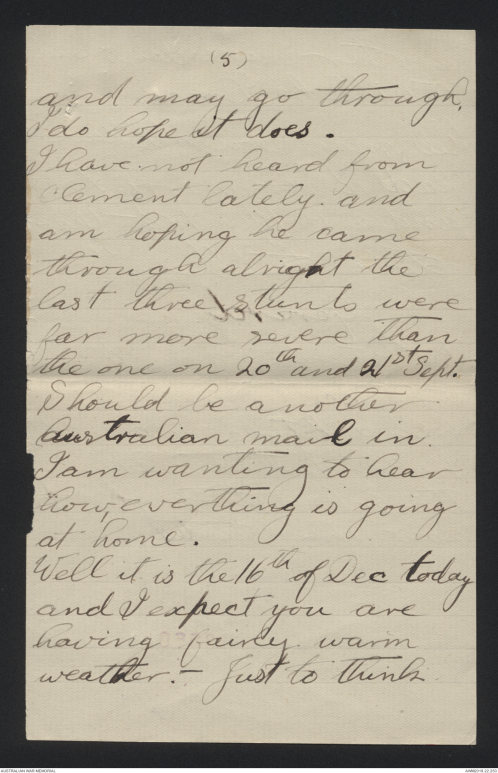 (5)
and may go through,
I do hope it does.
I have not heard from
Clement lately. and
am hoping he came
through alright the
last three stunts were
far more severe than
the one on 20th and 21st Sept.
Should be another
Australian mail in.
I am wanting to hear
how, everthing is going
at home.
Well it is the 16th of Dec today
and I expect you are
having fairly warm
weather. - Just to think
AUSTRALIAN WAR MEMORIAL